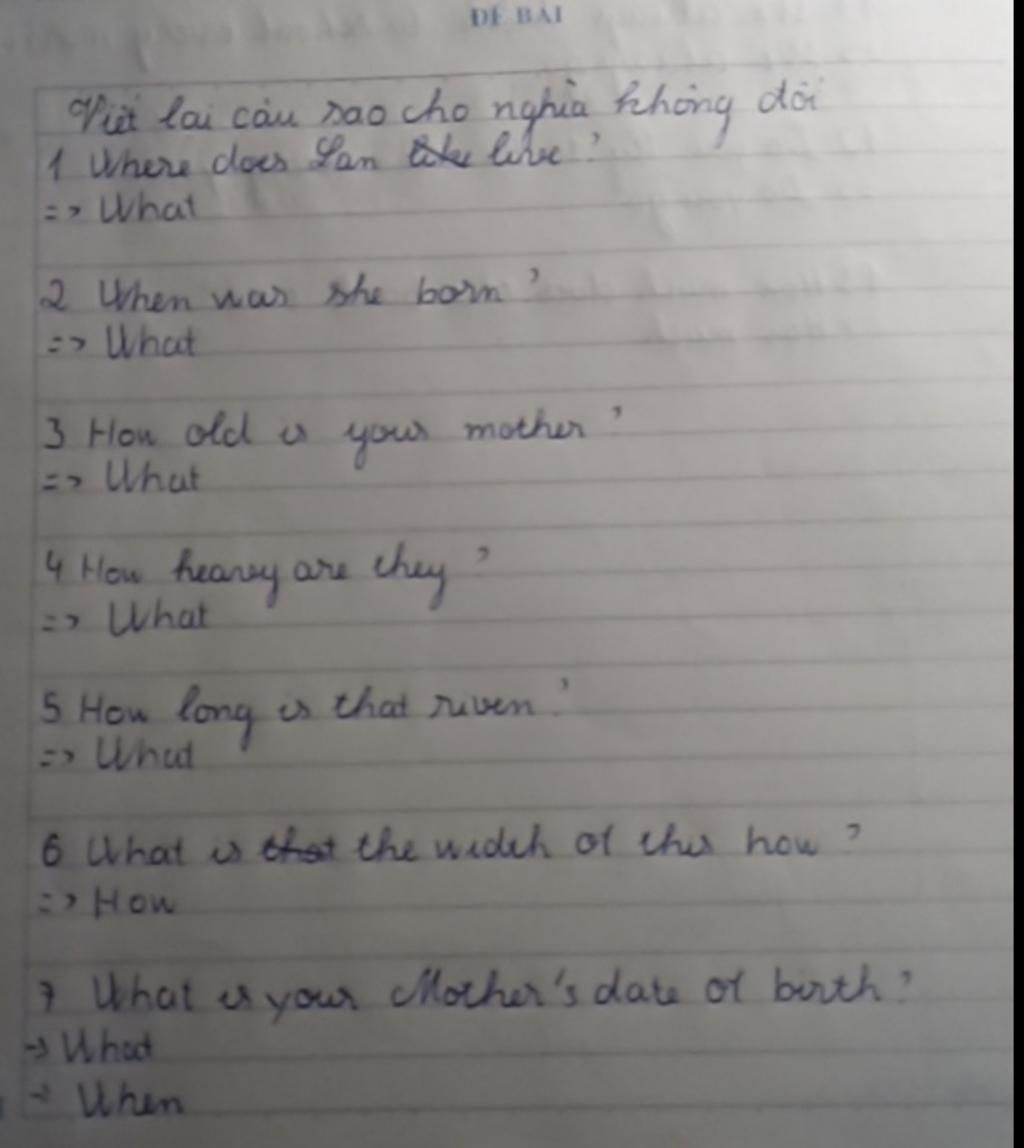 ĐỀ BÀI
Viết lại câu sao cho nghĩa không đổi
1 Where does Lan like live ?
=> What
2 When was she born ?
=> What
3 How old is your mother ?
=> What
4 How heavy are they ?
=> What
5 How long is that river ?
=> What
6 What is that the widch of this how ?
=> How
7 What is your Mother's date of birth ?
-> What
-> When